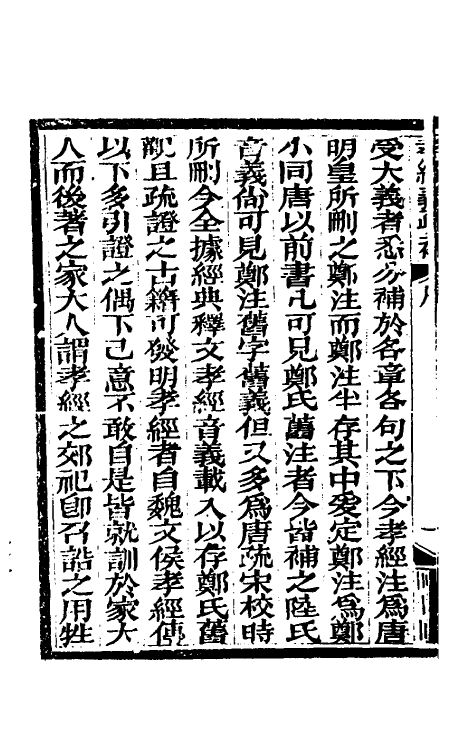 受大義者悉分補於各章各句之下今孝經注爲唐
明皇所刪之鄭注而鄭注半存其中爰定鄭注爲鄭
小同唐以前書凡可見鄭氏舊注者今皆補之陸氏
音義尙可見鄭注舊字舊義但又多爲唐疏宋校時
所刪今全據經典釋文孝經音義載入以存鄭氏舊
觀且疏證之古籍可發明孝經者自魏文侯孝經傳
以下多引證之偶下己意不敢自是皆就訓於家大
人而後著之家大人謂孝經之郊祀卽召誥之用牲